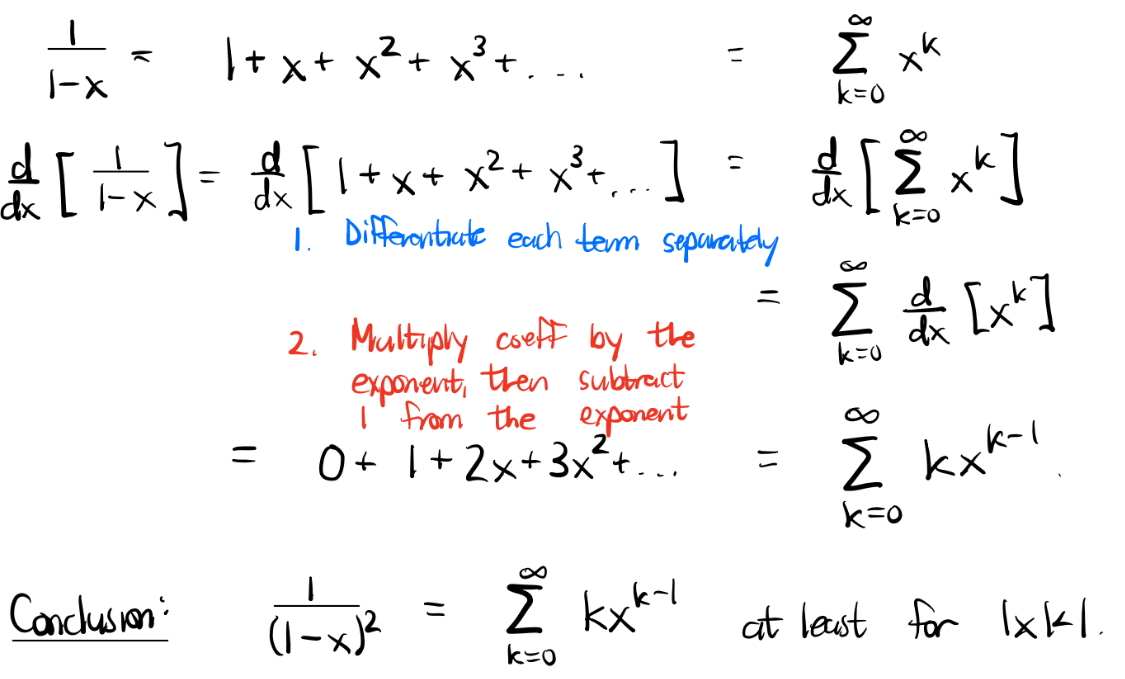 1/(1-x) = 1 + x + x² + x³ + .... = ∑_{k=0}^{∞} x^k
d/dx [1/(1-x)] = d/dx [1 + x + x² + x³ + ...] = d/dx [∑_{k=0}^{∞} x^k]
1. Differentiate each term separately
= ∑_{k=0}^{∞} d/dx [x^k]
2. Multiply coeff by the
exponent, then subtract
1 from the exponent
= 0 + 1 + 2x + 3x² + ... = ∑_{k=0}^{∞} kx^{k-1}
Conclusion: 1/(1-x)² = ∑_{k=0}^{∞} kx^{k-1} at least for |x|<1.